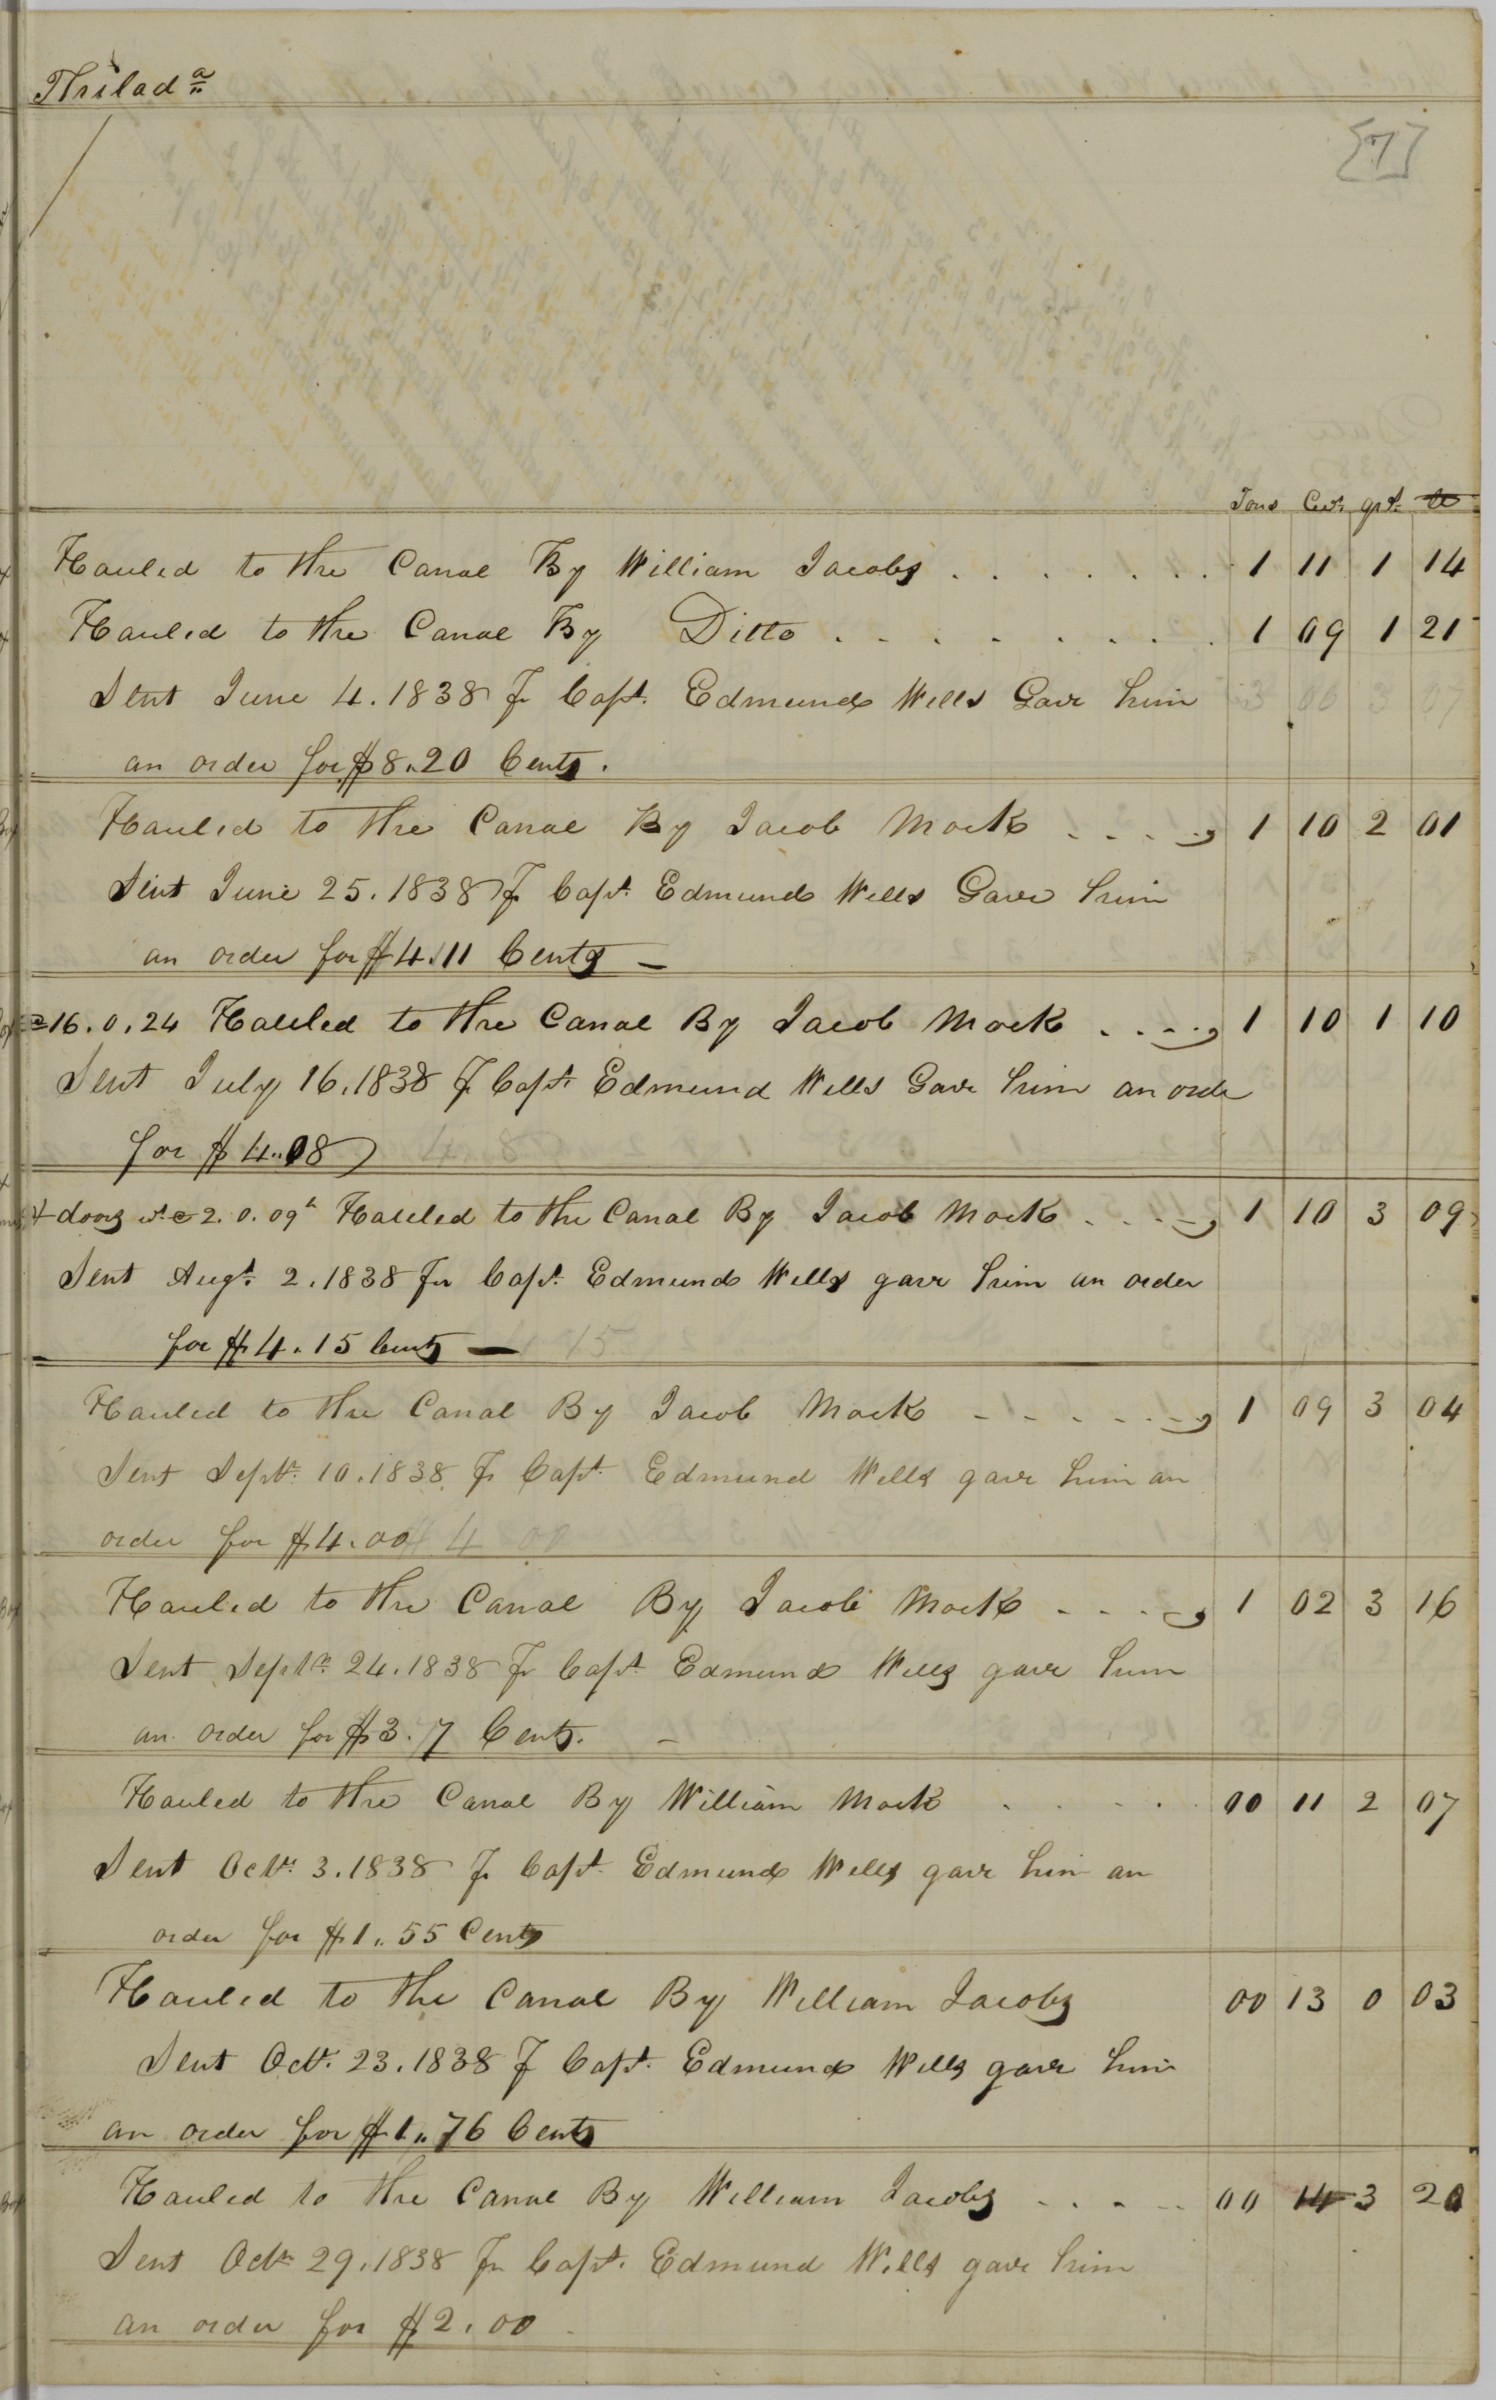 Philad a
[7]
Tons Cwt qrt lb
Hauled to the Canal By William Jacobs . . . . . . . 1 11 1 14
Hauled to the Canal By Ditto . . . . . . . 1 09 1 21
Sent June 4. 1838 Pr Capt. Edmund Wells Gave him 3 00 3 07
an order for $8.20 Cents.
Hauled to the Canal By Jacob Mock . . . . 1 10 2 01
Sent June 25. 1838 Pr Capt. Edmund Wells Gave him
an order for $4.11 Cents —
16.0.24 Hauled to the Canal By Jacob Mock . . . . 1 10 1 10
Sent July 16. 1838 Pr Capt. Edmund Wells Gave him an orde
for $4..08
doors wt 2.0.09 Hauled to the Canal By Jacob Mock . . . . 1 10 3 09
Sent Augt. 2. 1838 Pr Capt. Edmund Wells gave him an order
for $4.15 Cents — 15
Hauled to the Canal By Jacob Mock - - - - - - 1 09 3 04
Sent Sept. 10. 1838 Pr Capt. Edmund Wells gave him an
order for $4.00 4 00
Hauled to the Canal By Jacob Mock . . . . 1 02 3 16
Sent Septr. 24. 1838 Pr Capt Edmund Wells gave him
an order for $3.7 Cents. —
Hauled to the Canal By William Mock . . . . 00 11 2 07
Sent Octr. 3. 1838 Pr Capt. Edmund Wells gave him an
order for $1.. 55 Cents
Hauled to the Canal By William Jacobs 00 13 0 03
Sent Oct. 23. 1838 Pr Capt. Edmund Wells gave him
an order for $1.. 76 Cents
Hauled to the Canal By William Jacobs . . . . 00 14 3 20
Sent Octr 29. 1838 Pr Capt. Edmund Wells gave him
an order for $2.00